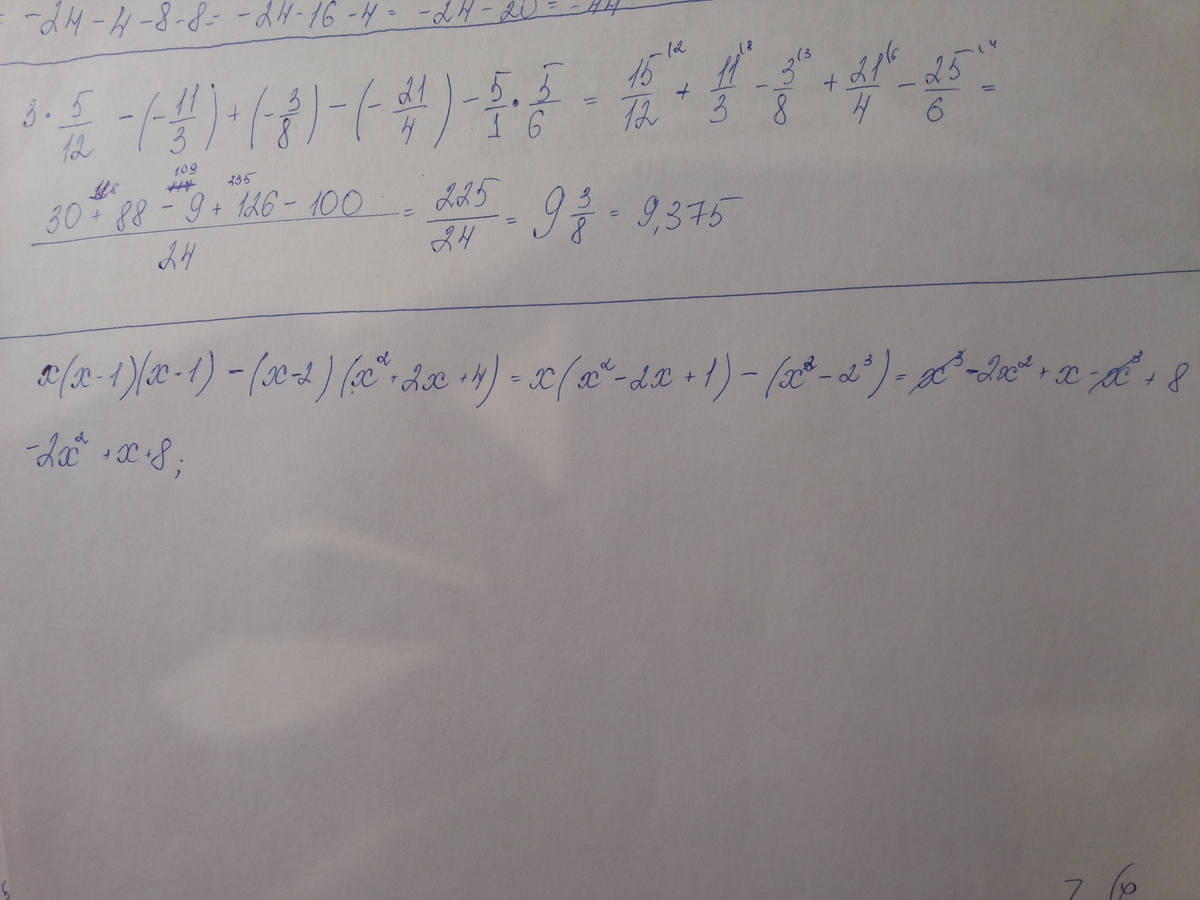 = -24 - 4 - 8 - 8 = -24 - 16 - 4 = -24 - 20 = -44
3 · 5/12 - (-11/3) + (-3/8) - (-21/4) - 5/1 · 5/6 = 15/12 |2 + 11/3 |8 - 3/8 |3 + 21/4 |6 - 25/6 |4 =
118 109 235
(30 + 88 - 9 + 126 - 100)/24 = 225/24 = 9 3/8 = 9,375
x(x-1)(x-1) - (x-2)(x² + 2x + 4) = x(x² - 2x + 1) - (x³ - 2³) = x³ - 2x² + x - x³ + 8
-2x² + x + 8;